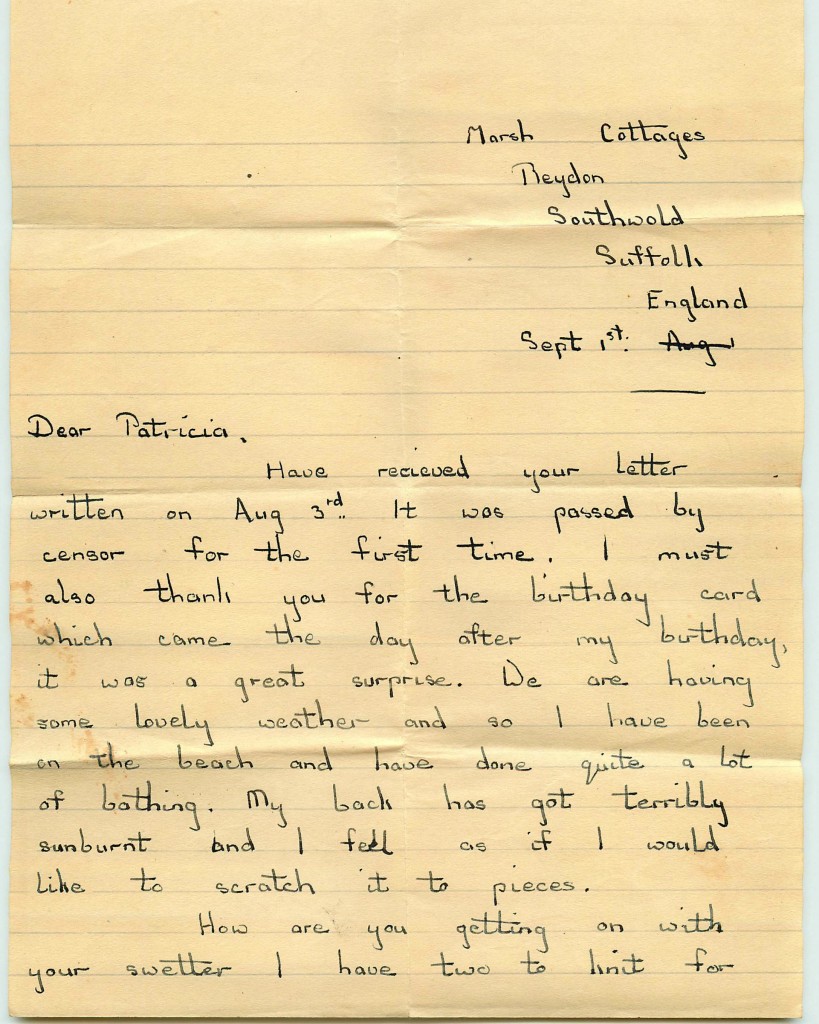 Marsh Cottages
Reydon
Southwold
Suffolk
England
Sept 1st. Aug 1
Dear Patricia,
Have recieved your letter
written on Aug 3rd. It was passed by
censor for the first time. I must
also thank you for the birthday card
which came the day after my birthday,
it was a great surprise. We are having
some lovely weather and so I have been
on the beach and have done quite a lot
of bathing. My back has got terribly
sunburnt and I feel as if I would
like to scratch it to pieces.
How are you getting on with
your swetter I have two to knit for